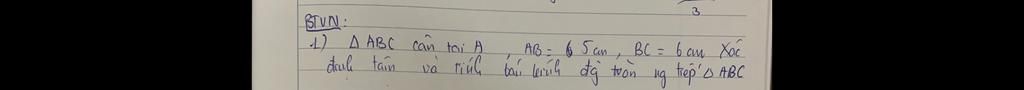 3
BTVN:
1) Δ ABC cân tại A, AB = 5 cm, BC = 6 cm Xác
định tâm và tính bán kính đg tròn ng tiếp Δ ABC